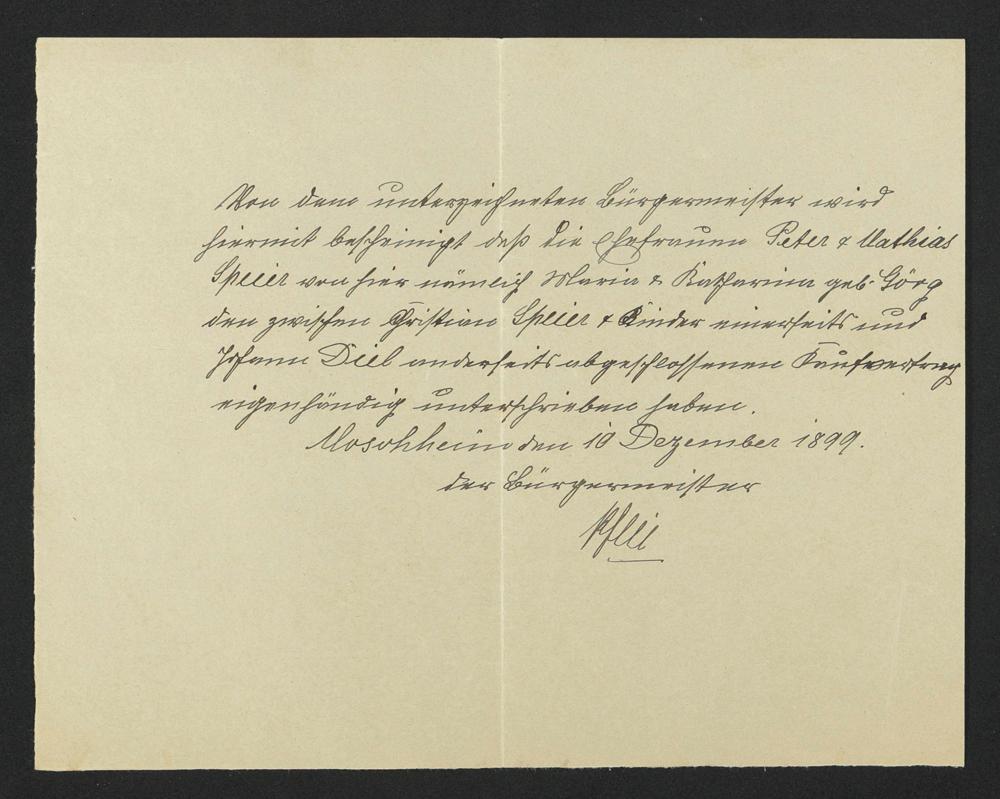 Von dem unterzeichneten Bürgermeister wird
hiermit bescheinigt daß die Ehefrauen Peter & Mathias
Speier von hier nämlich Maria & Katharina geb. Görg
den zwischen Christian Speier & Kinder einerseits und
Johann Diel anderseits abgeschlossenen Kaufvertrag
eigenhändig unterschrieben haben.
Moschheim den 10 Dezember 1899.
der Bürgermeister